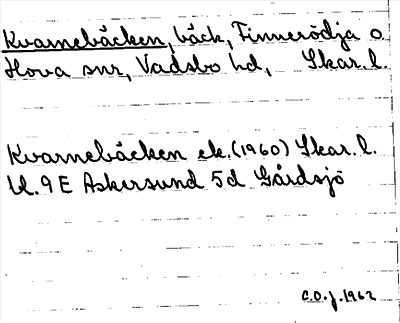 Kvarnebäcken, bäck, Finnerödja o.
Hova snr, Vadsbo hd, Skar. l.
Kvarnebäcken ek. (1960) Skar. l.
Bl. 9 E Askersund 5d Gårdsjö
C.O.J. 1962